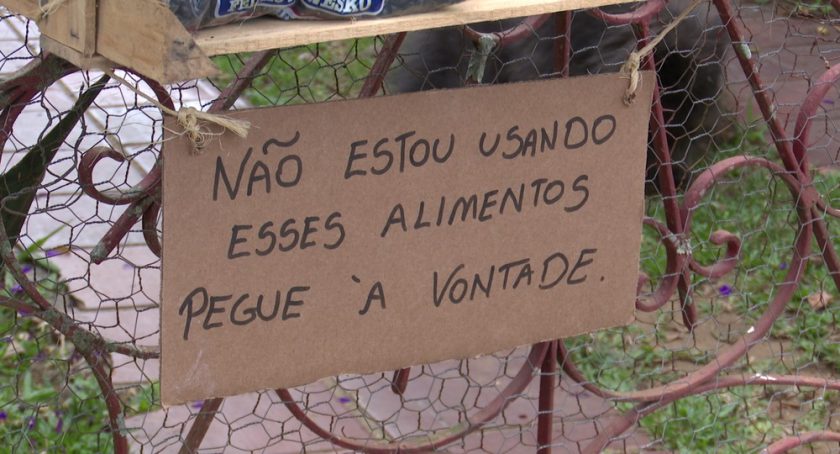 NÃO ESTOU USANDO
ESSES ALIMENTOS
PEGUE À VONTADE.